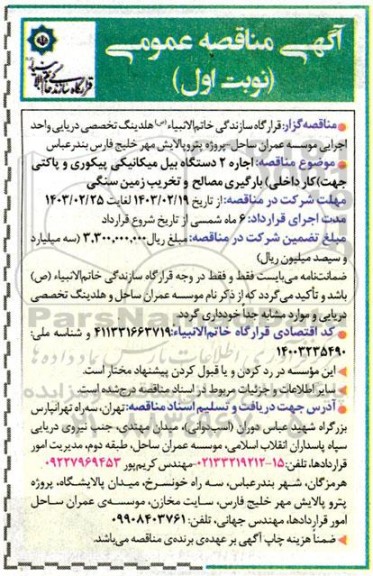 آگهی مناقصه عمومی
(نوبت اول)
قرارگاه سازندگی خاتم‌الانبیاء
مناقصه‌گزار: قرارگاه سازندگی خاتم‌الانبیاء (ص) هلدینگ تخصصی دریایی واحد
اجرایی موسسه عمران ساحل-پروژه پتروپالایش مهر خلیج فارس بندرعباس
موضوع مناقصه: اجاره ۲ دستگاه بیل میکانیکی پیکوری و پاکتی
جهت)کار داخلی) بارگیری مصالح و تخریب زمین سنگی
مهلت شرکت در مناقصه: از تاریخ ۱۴۰۳/۰۲/۱۹ لغایت ۱۴۰۳/۰۲/۲۵
مدت اجرای قرارداد: ۶ ماه شمسی از تاریخ شروع قرارداد
مبلغ تضمین شرکت در مناقصه: مبلغ ریال۳.۳۰۰.۰۰۰.۰۰۰ (سه میلیارد
و سیصد میلیون ریال)
ضمانت‌نامه می‌بایست فقط و فقط در وجه قرارگاه سازندگی خاتم‌الانبیاء (ص)
باشد و تأکید می‌گردد که از ذکر نام موسسه عمران ساحل و هلدینگ تخصصی
دریایی و موارد مشابه جداً خودداری گردد
کد اقتصادی قرارگاه خاتم‌الانبیاء: ۴۱۱۳۳۱۶۶۳۷۱۹ و شناسه ملی:
۱۴۰۰۳۲۳۵۴۹۰
این مؤسسه در رد کردن و یا قبول کردن پیشنهاد مختار است.
سایر اطلاعات و جزئیات مربوط در اسناد مناقصه درج‌شده است.
آدرس جهت دریافت و تسلیم اسناد مناقصه: تهران، سه‌راه تهرانپارس
بزرگراه شهید عباس دوران (اسب‌دوانی) میدان مهندی، جنب نیروی دریایی
سپاه پاسداران انقلاب اسلامی، موسسه عمران ساحل، طبقه دوم، مدیریت امور
قراردادها، تلفن: ۱۵-۰۲۱۳۳۲۱۹۲۱۲-مهندس کریم‌پور ۰۹۲۲۷۹۶۹۴۵۳
هرمزگان، شهر بندرعباس، سه راه خونسرخ، میدان پالایشگاه، پروژه
پترو پالایش مهر خلیج فارس، سایت مخازن، موسسه‌ی عمران ساحل
امور قراردادها، مهندس جهانی، تلفن: ۰۹۹۰۸۴۰۳۷۶۱
ضمناً هزینه چاپ آگهی بر عهده‌ی برنده‌ی مناقصه می‌باشد.